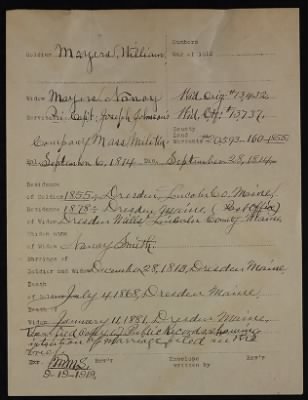 Numbers
Soldier Mayers, William, War of 1812
Widow Mayers, Nancy Wid. Orig. #13,422
Service Pri. Capt. Joseph Johnson's Wid. Ctf. #13737.
County
Land
Company Mass. Militia Warrants 160-1855
September 6, 1814 September 28, 1814
Residence
of Soldier 1855, Dresden, Lincoln Co., Maine,
Residence 1878, Dresden Maine, (Post Office)
of Widow Dresden Mills, Lincoln County Maine
Maiden name
of Widow Nancy Smith
Marriage of
Soldier and Widow December 28, 1813, Dresden, Maine,
Death
of Soldier July 4, 1868, Dresden Maine,
Death
of Widow January 11, 1881, Dresden Maine,
Certified Copy of Public Records showing
intention of marriage filed in the
brief.
Exr. Rev'r Envelope Rev'r
written by
9-19-1919